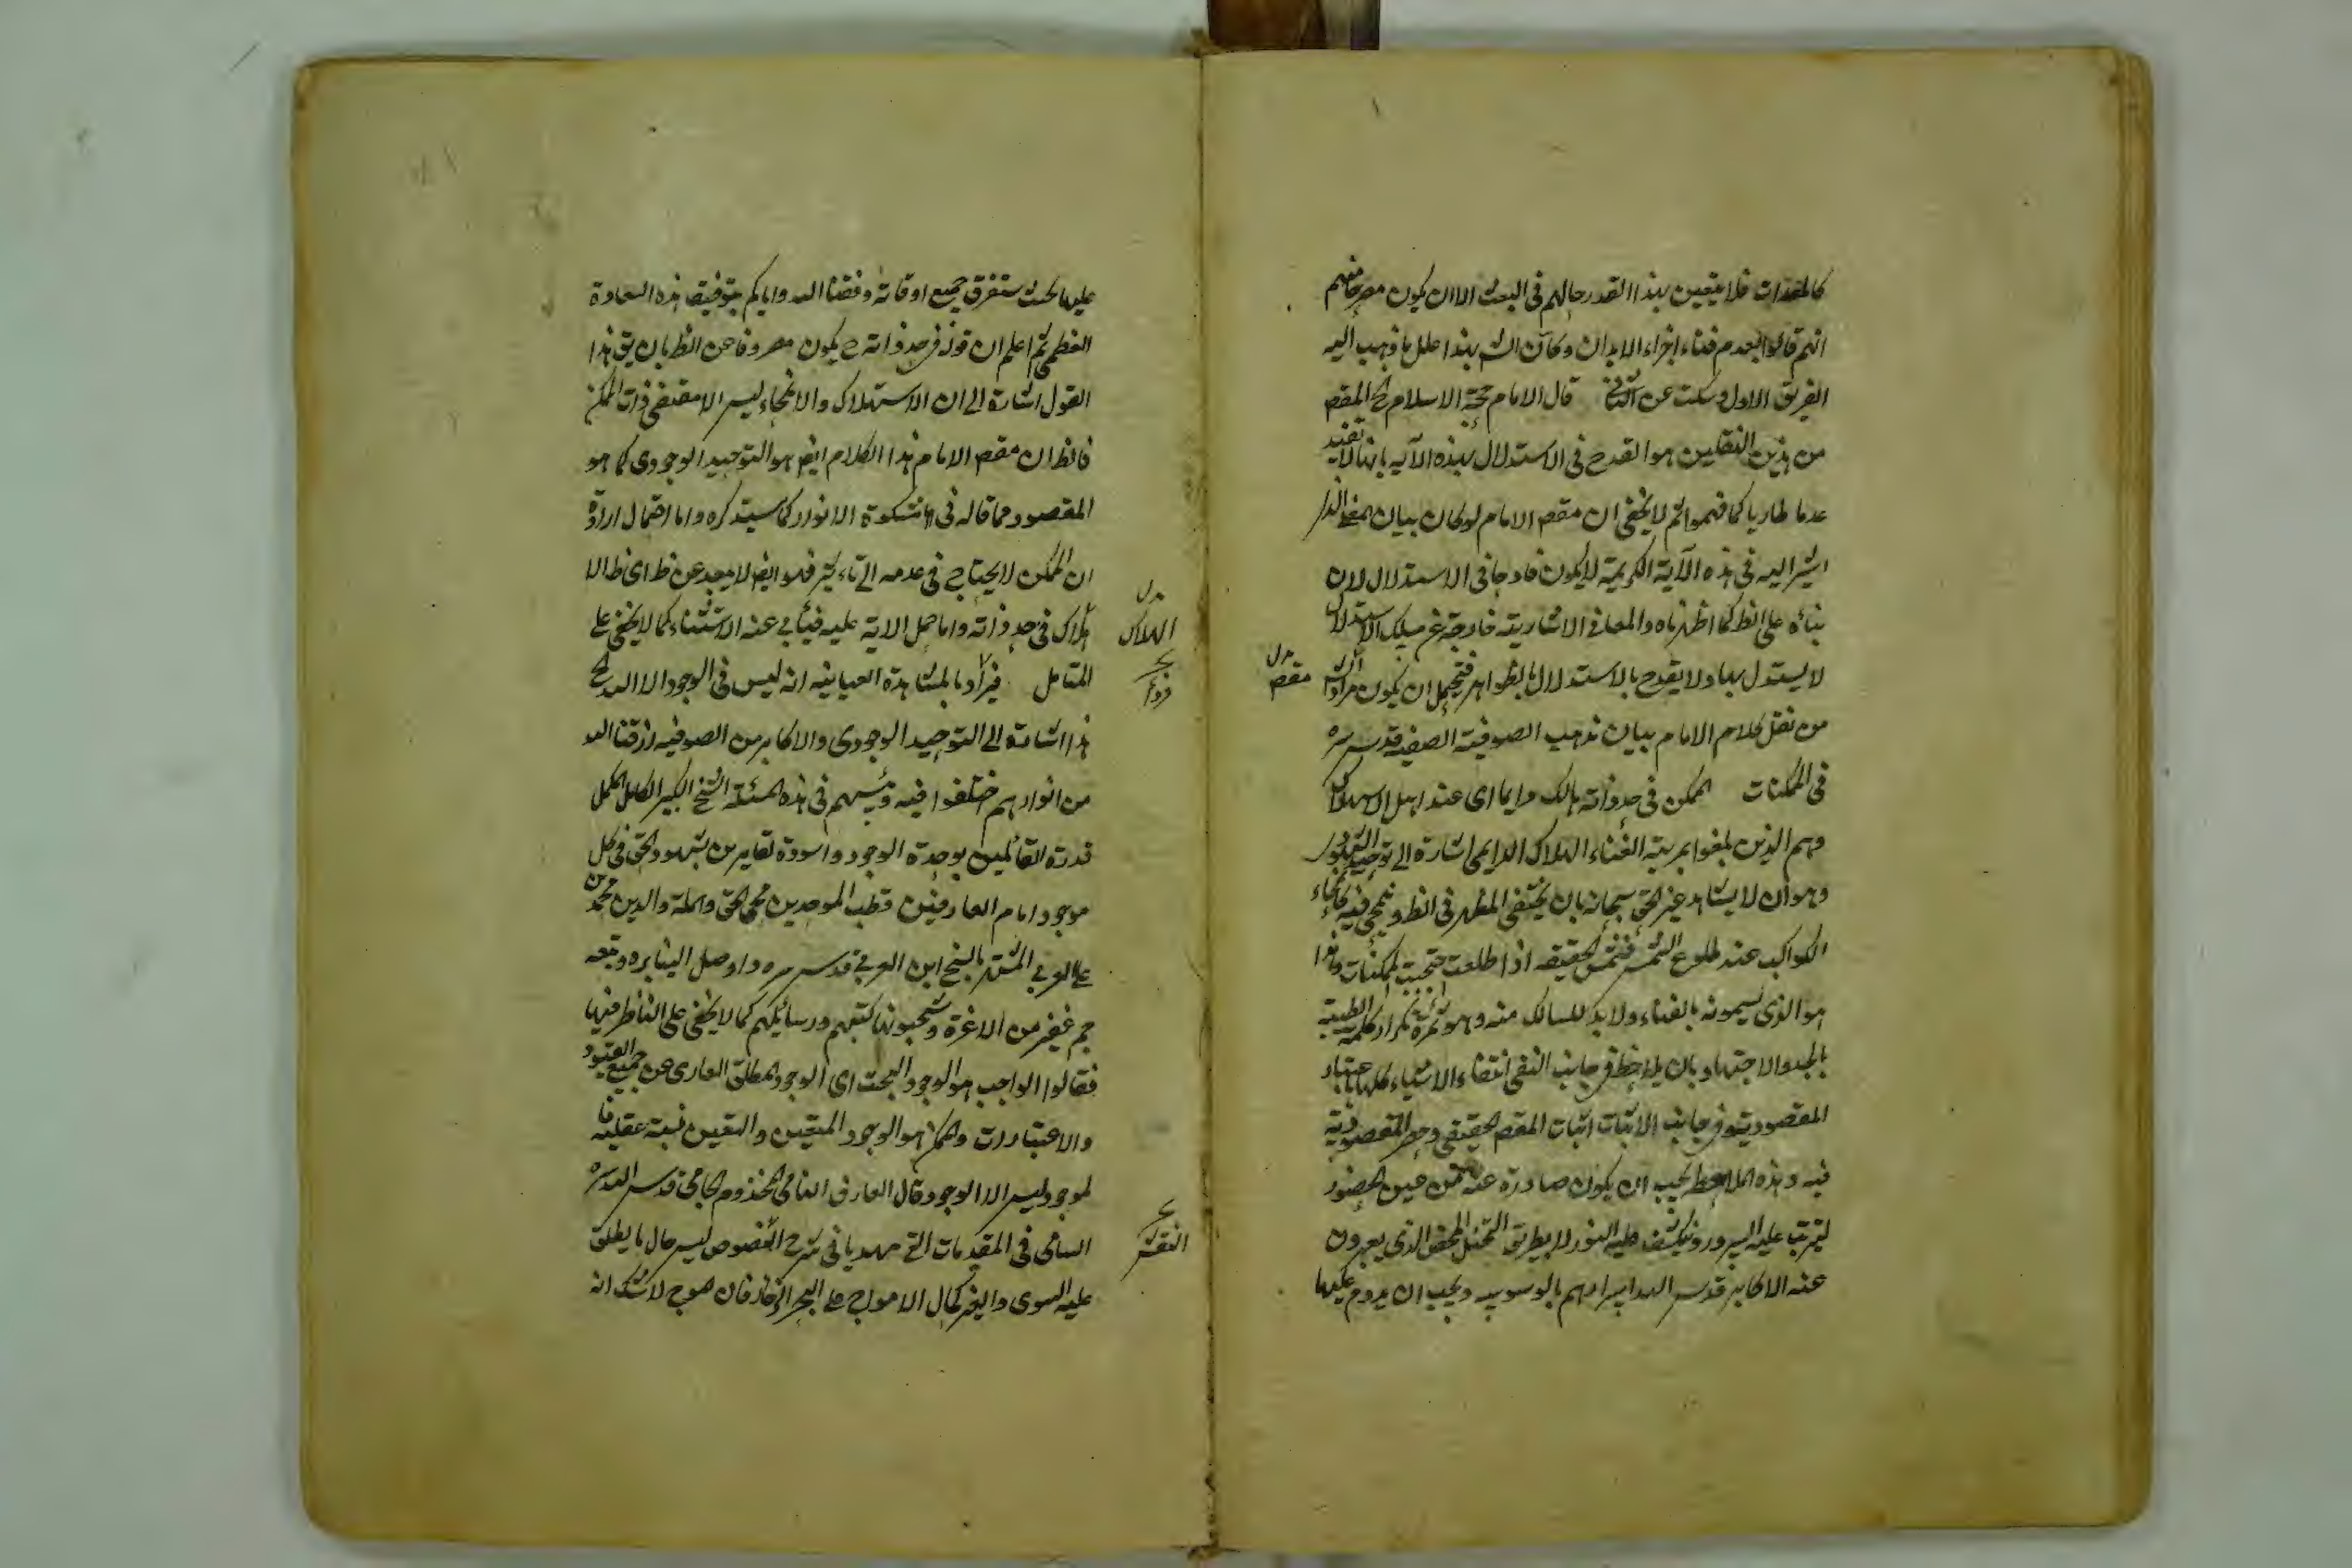 فلا يتعين بهذا القدر حالهم في البعث الا ان يكون
انهم قالوا بعدم فناء اجزاء الابدان وكان الش بهذا علل ما ذهب اليه
الفريق الاول وسكت عن الثاني قال الامام حجة الاسلام الخ المقص
من هذين النقلين هو القدح في الاستدلال بهذه الآية بانها لا تفيد
عدما طاريا كما فهموا ثم لا يخفى ان مقص الامام لو كان بيان
اشير اليه في هذه الآية الكريمة لا يكون قادحا في الاستدلال لان
بنائه على الظ كما اظهرناه والمعاني الاشارية خارجة عن مسلك الاستدلال
لا يستدل بها ولا يقدح بالاستدلال بالظواهر فيحتمل ان يكون مراد الش
مقص
من نقل كلام الامام بيان مذهب الصوفية الصفية قدس سره
في الممكنات الممكن في حد ذاته هالك دايما اى عند اهل
وهم الذين بلغوا بمرتبة الفناء الهلاك الدايمى اشارة الى توحيد
وهو ان لا يشاهد غير الحق سبحانه بان يختفى المظهر في الظ وينمحي فيه
الكواكب عند طلوع الشمس فشمس الحقيقة اذا طلعت الممكنات وهذا
هو الذى يسمونه بالفناء ولا بد للسالك منه وهو ثمرة تكرار كلمة الطيبة
بالجد والاجتهاد بان يلاحظ في جانب النفى انتفاء الاشياء كلها
المقصودية وفي جانب الاثبات اثبات المقص الحقيقى وحصر المقصودية
فيه وهذه يجب ان يكون صادرة عنه عن عين الحضور
ليترتب عليه السرور وينكشف عليه النور لا بطريق التخيل المحض الذى يعبرون
عنه الاكابر قدس الله اسرارهم بالوسوسة ويجب ان يدوم عليها
عليها بحيث ستغرق جميع اوقاته وفقنا الله واياكم بتوفيق هذه السعادة
العظمى ثم اعلم ان قوله في حد ذاته ح يكون مصروفا عن الظ بان يق هذا
القول اشارة الى ان الاستهلاك والانمحاء ليس الا مقتضى ذات الممكن
فالظ ان مقص الامام هذا الكلام ايض هو التوحيد الوجودى كما هو
المقصود مما قاله في مشكوة الانوار كما سيذكره واما احتمال ارادة
ان الممكن لا يحتاج في عدمه الى تأثير فهو ايض لا يبعد عن ظ اى ظ الا
هلاك في حد ذاته واما حمل الاية عليه فيأبى عنه الاستثناء كما لا يخفى على
الهلاك
المتأمل فيرى بالمشاهدة العيانية انه ليس في الوجود الا الله الخ
هذا اشارة الى التوحيد الوجودى والاكابر من الصوفية رزقنا الله
من انوارهم اختلفوا فيه ورئيسهم في هذه المسئلة الشيخ الكبير الكامل المكمل
قدوة القائلين بوحدة الوجود واسوة من بشهود الحق في كل
موجود امام العارفين قطب الموحدين محي الحق والملة والدين محمد بن
على العربي المشتهر بالشيخ ابن العربي قدس سره واوصل الينا بره وتبعه
جم غفير من الاعزة كتبهم ورسائلهم كما لا يخفى على الناظر فيها
فقالوا الواجب هو الوجود البحت اى الوجود المطلق العارى عن جميع القيود
والاعتبارات والممكن هو الوجود المتعين والتعين نسبة عقلية فا
لموجود ليس الا الوجود قال العارف النامى المخدوم الجامى قدس الله سره
السامى في المقدمات التى مهدها في شرح الفصوص ليس حال ما يطلق
عليه السوى والغير كحال الامواج على البحر الزخار فان الموج لا شك انه